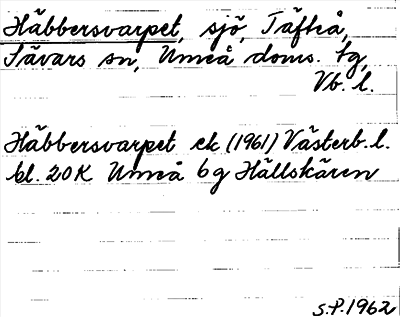 Häbbersvarpet, sjö, Täfteå,
Sävars sn, Umeå doms. tg,
Vb. l.
Häbbersvarpet ek (1961) Västerb. l.
bl. 20K Umeå 6g Hällskären
S.P. 1962